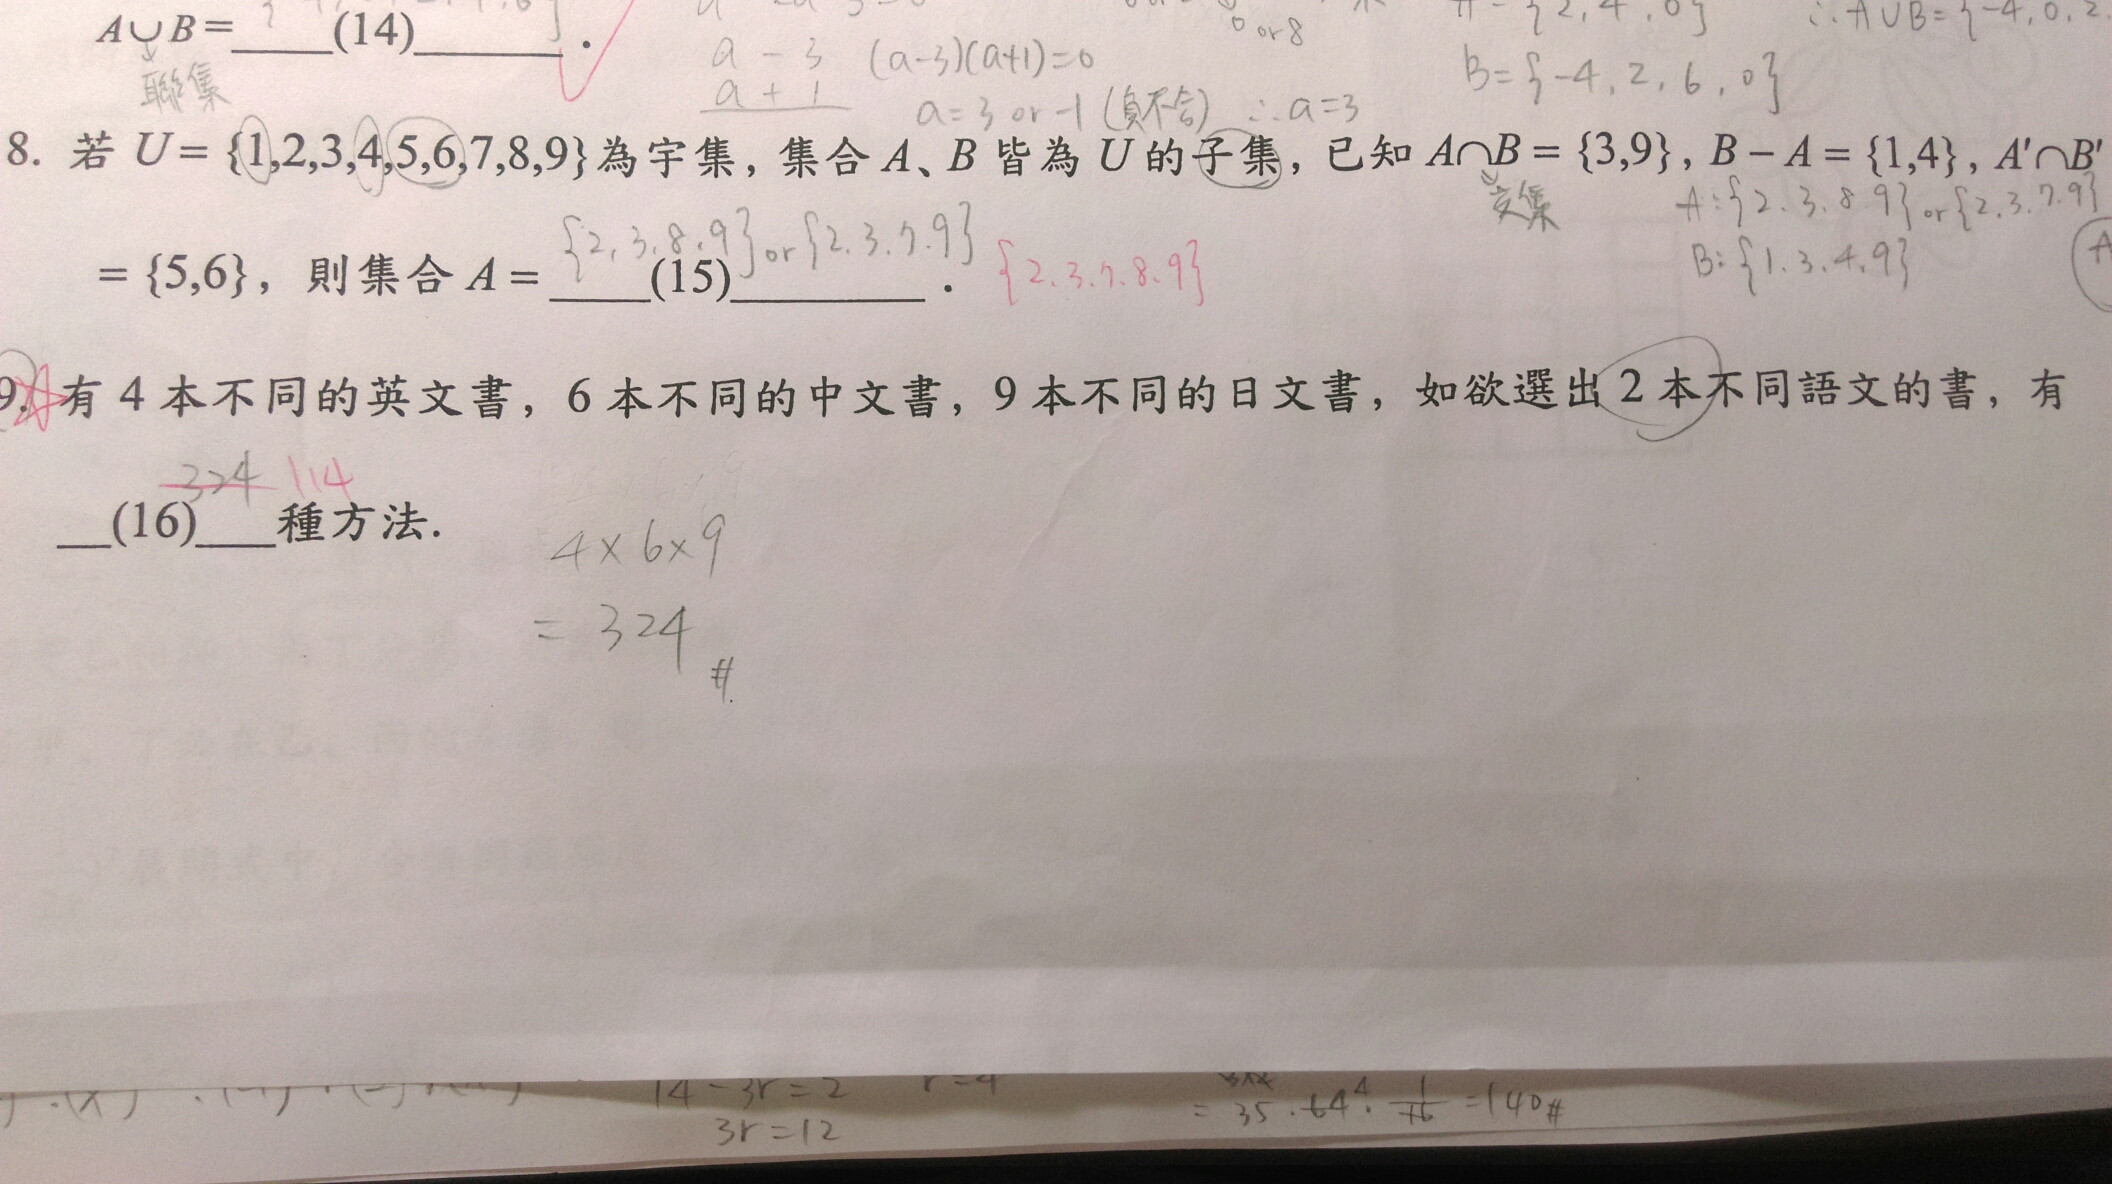 A∪B=____(14)______.
聯集
a - 3 (a-3)(a+1)=0
a + 1
a=3 or -1 (負不合) ∴a=3
0 or 8
A={2,4,0}
B={-4,2,6,0}
∴A∪B={-4,0,2
8. 若 U={1,2,3,4,5,6,7,8,9}為宇集, 集合 A、B 皆為 U 的子集, 已知 A∩B={3,9}, B-A={1,4}, A'∩B'
交集
A:{2.3.8.9} or {2.3.7.9}
B:{1.3.4.9}
{2,3,8,9} or {2.3.7.9}
={5,6}, 則集合 A=____(15)________. {2.3.7.8.9}
9. 有 4 本不同的英文書, 6 本不同的中文書, 9 本不同的日文書, 如欲選出 2 本不同語文的書, 有
324 114
__(16)___種方法.
4×6×9
= 324 #
14-3r=2 r=4
3r=12
= 35·64⁴·1/16=140#